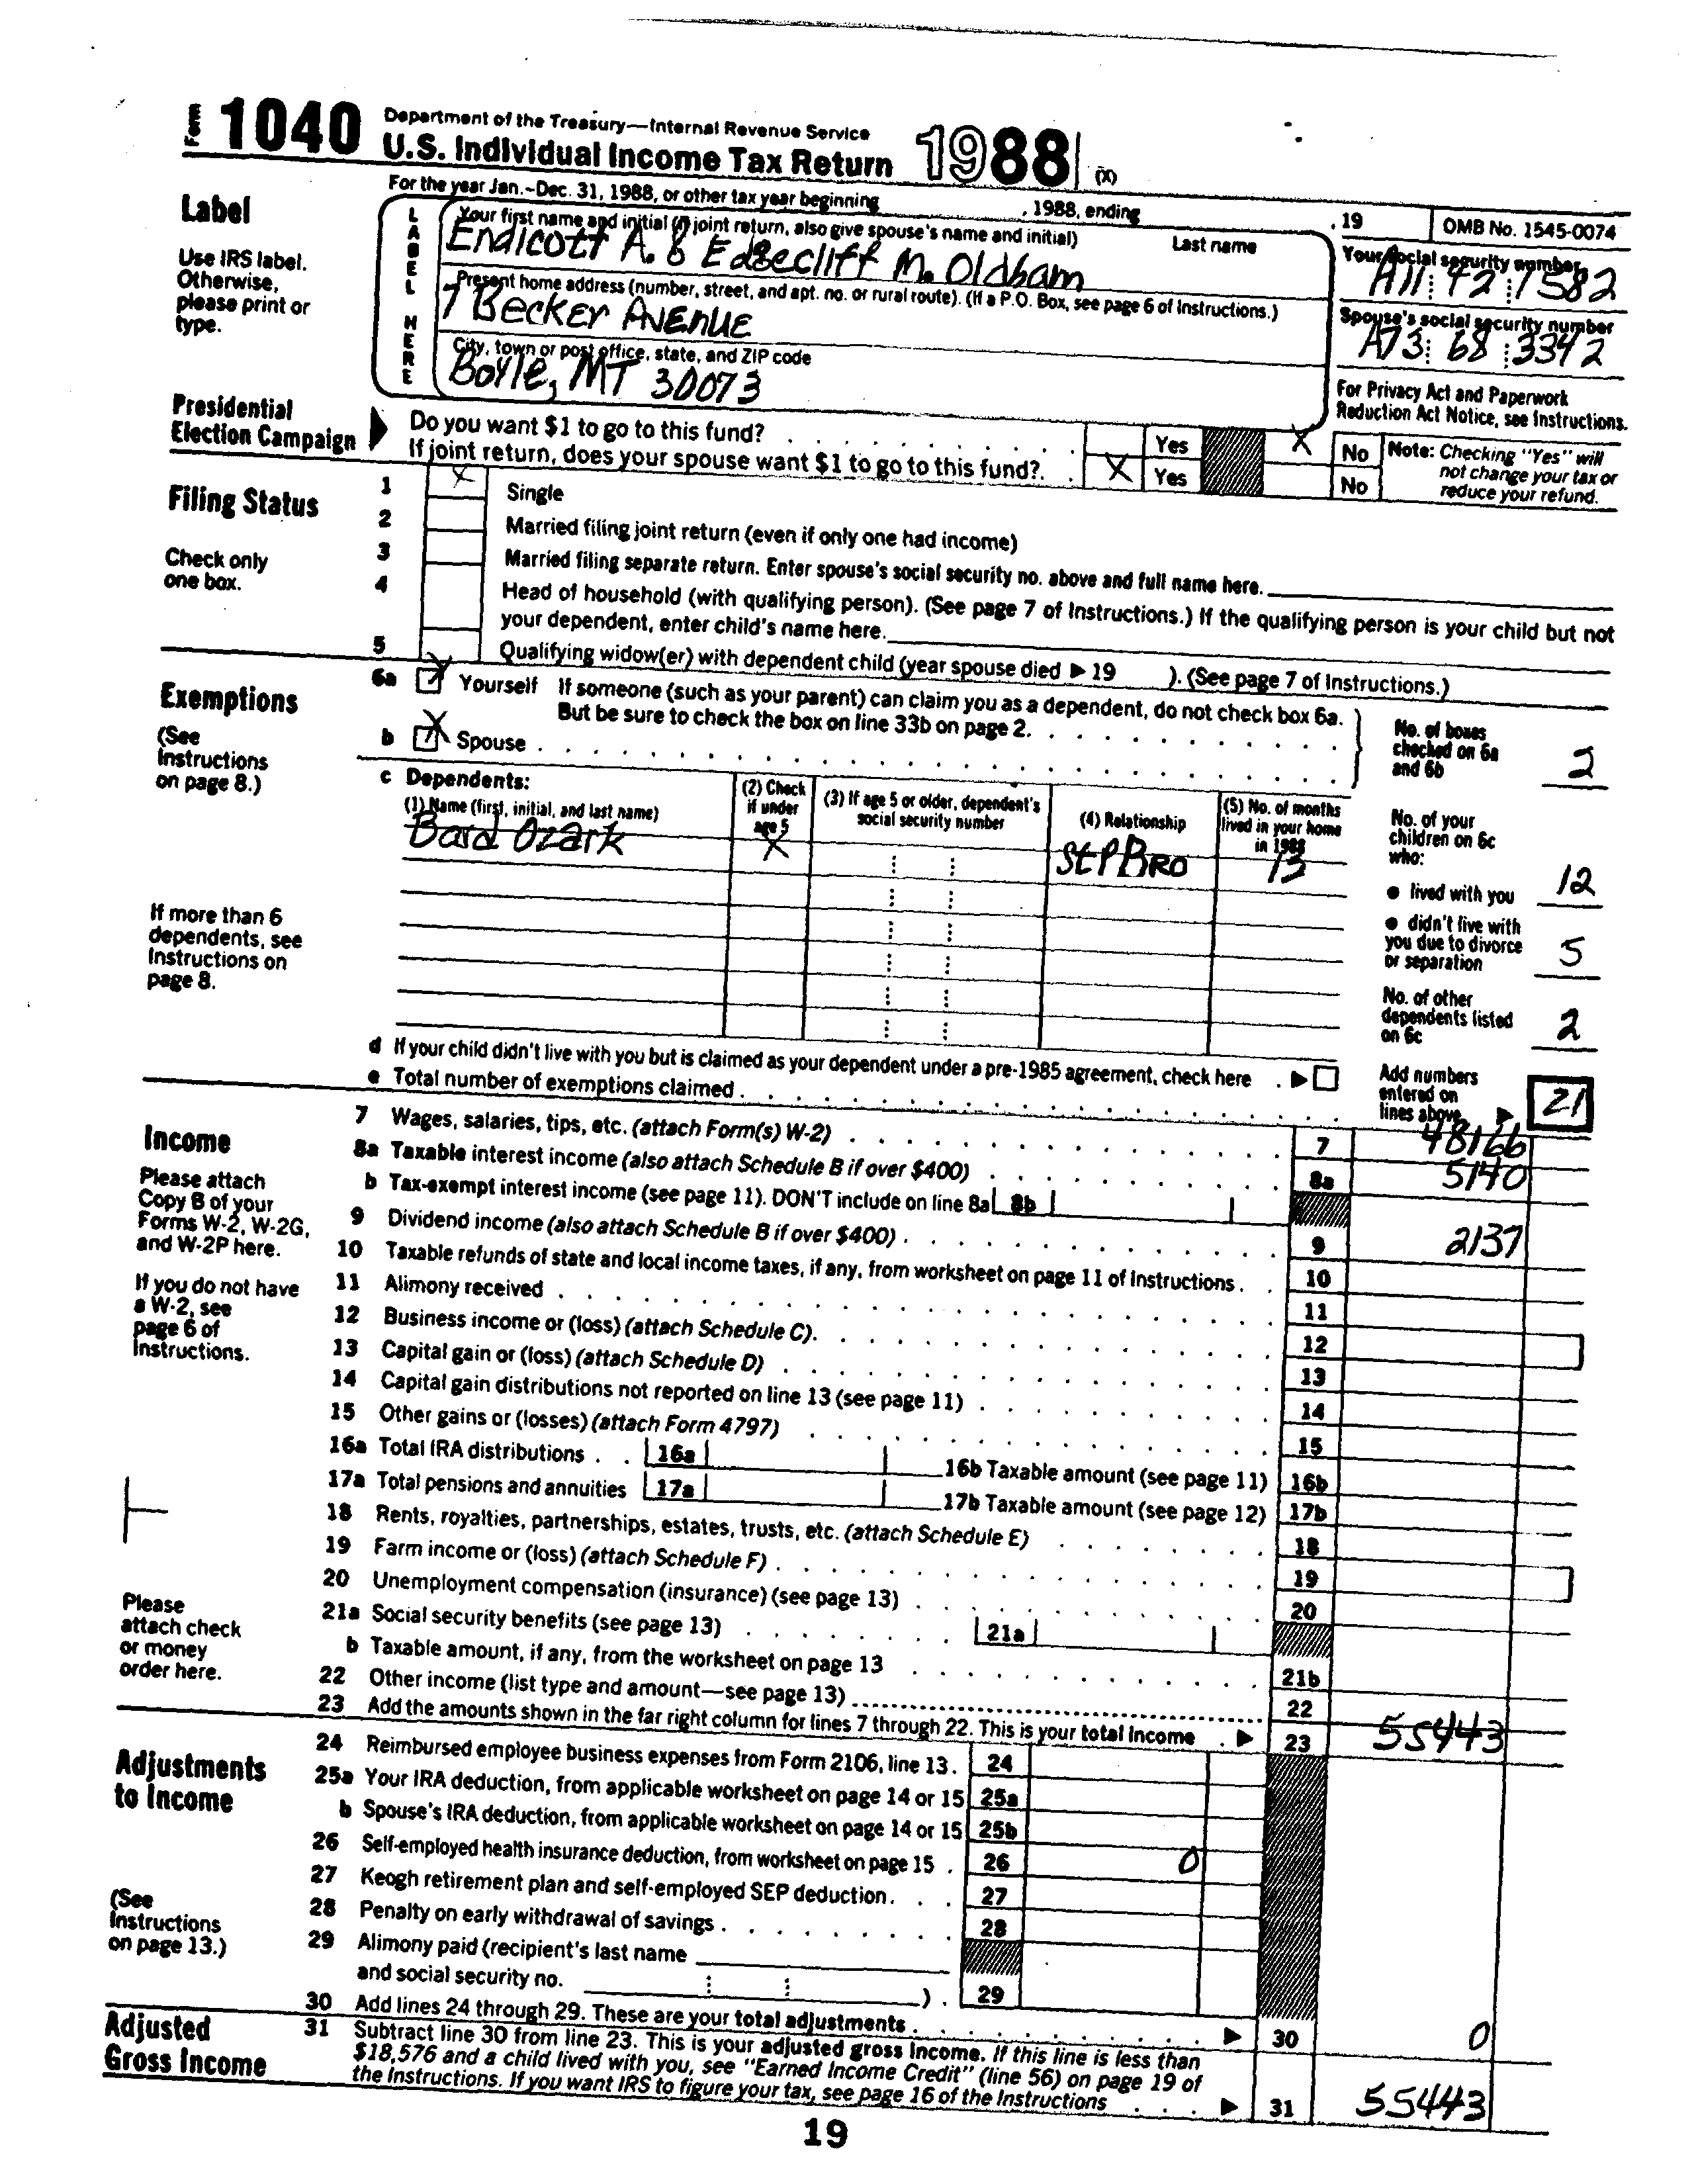 Form 1040 Department of the Treasury—Internal Revenue Service
U.S. Individual Income Tax Return 1988 (X)
For the year Jan.–Dec. 31, 1988, or other tax year beginning , 1988, ending , 19 OMB No. 1545-0074
Label
Use IRS label.
Otherwise,
please print or
type.
LABEL HERE
Your first name and initial (if joint return, also give spouse's name and initial) Last name
Endicott A. & Edgecliff M. Oldham
Your social security number
A11 42 1582
Present home address (number, street, and apt. no. or rural route). (If a P.O. Box, see page 6 of Instructions.)
7 Becker Avenue
Spouse's social security number
A73 68 3342
City, town or post office, state, and ZIP code
Boyle, MT 30073
For Privacy Act and Paperwork
Reduction Act Notice, see Instructions.
Presidential
Election Campaign
Do you want $1 to go to this fund? Yes X No
If joint return, does your spouse want $1 to go to this fund? X Yes No
Note: Checking "Yes" will
not change your tax or
reduce your refund.
Filing Status
Check only
one box.
1 X Single
2 Married filing joint return (even if only one had income)
3 Married filing separate return. Enter spouse's social security no. above and full name here.
4 Head of household (with qualifying person). (See page 7 of Instructions.) If the qualifying person is your child but not
your dependent, enter child's name here.
5 Qualifying widow(er) with dependent child (year spouse died ▶ 19 ). (See page 7 of Instructions.)
Exemptions
(See
Instructions
on page 8.)
6a X Yourself If someone (such as your parent) can claim you as a dependent, do not check box 6a.
But be sure to check the box on line 33b on page 2.
b X Spouse
No. of boxes
checked on 6a
and 6b 2
c Dependents:
(1) Name (first, initial, and last name)
(2) Check
if under
age 5
(3) If age 5 or older, dependent's
social security number
(4) Relationship
(5) No. of months
lived in your home
in 1988
Bard Ozark X StPBRO 13
If more than 6
dependents, see
Instructions on
page 8.
No. of your
children on 6c
who:
● lived with you 12
● didn't live with
you due to divorce
or separation 5
No. of other
dependents listed
on 6c 2
d If your child didn't live with you but is claimed as your dependent under a pre-1985 agreement, check here ▶
e Total number of exemptions claimed
Add numbers
entered on
lines above ▶ 21
Income
Please attach
Copy B of your
Forms W-2, W-2G,
and W-2P here.
If you do not have
a W-2, see
page 6 of
Instructions.
7 Wages, salaries, tips, etc. (attach Form(s) W-2) 7 48166
8a Taxable interest income (also attach Schedule B if over $400) 8a 5140
b Tax-exempt interest income (see page 11). DON'T include on line 8a 8b
9 Dividend income (also attach Schedule B if over $400) 9 2137
10 Taxable refunds of state and local income taxes, if any, from worksheet on page 11 of Instructions 10
11 Alimony received 11
12 Business income or (loss) (attach Schedule C) 12
13 Capital gain or (loss) (attach Schedule D) 13
14 Capital gain distributions not reported on line 13 (see page 11) 14
15 Other gains or (losses) (attach Form 4797) 15
16a Total IRA distributions 16a 16b Taxable amount (see page 11) 16b
17a Total pensions and annuities 17a 17b Taxable amount (see page 12) 17b
18 Rents, royalties, partnerships, estates, trusts, etc. (attach Schedule E) 18
19 Farm income or (loss) (attach Schedule F) 19
20 Unemployment compensation (insurance) (see page 13) 20
21a Social security benefits (see page 13) 21a
b Taxable amount, if any, from the worksheet on page 13 21b
22 Other income (list type and amount—see page 13) 22
23 Add the amounts shown in the far right column for lines 7 through 22. This is your total income ▶ 23 55443
Please
attach check
or money
order here.
Adjustments
to Income
(See
Instructions
on page 13.)
24 Reimbursed employee business expenses from Form 2106, line 13. 24
25a Your IRA deduction, from applicable worksheet on page 14 or 15 25a
b Spouse's IRA deduction, from applicable worksheet on page 14 or 15 25b
26 Self-employed health insurance deduction, from worksheet on page 15 26 0
27 Keogh retirement plan and self-employed SEP deduction 27
28 Penalty on early withdrawal of savings 28
29 Alimony paid (recipient's last name
and social security no. ) 29
30 Add lines 24 through 29. These are your total adjustments ▶ 30 0
Adjusted
Gross Income
31 Subtract line 30 from line 23. This is your adjusted gross income. If this line is less than
$18,576 and a child lived with you, see "Earned Income Credit" (line 56) on page 19 of
the Instructions. If you want IRS to figure your tax, see page 16 of the Instructions ▶ 31 55443
19